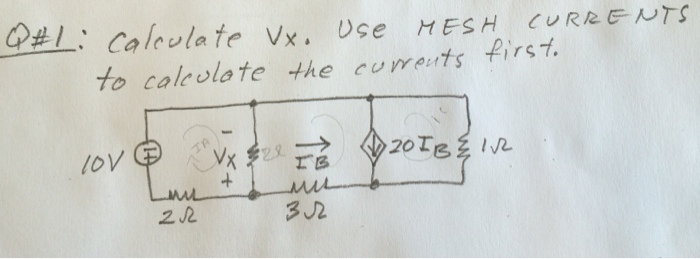 Q#1: Calculate Vx. Use MESH CURRENTS
to calculate the currents first.
10V
+
-
Vx
+
2Ω
IB
20IB
1Ω
2Ω
3Ω